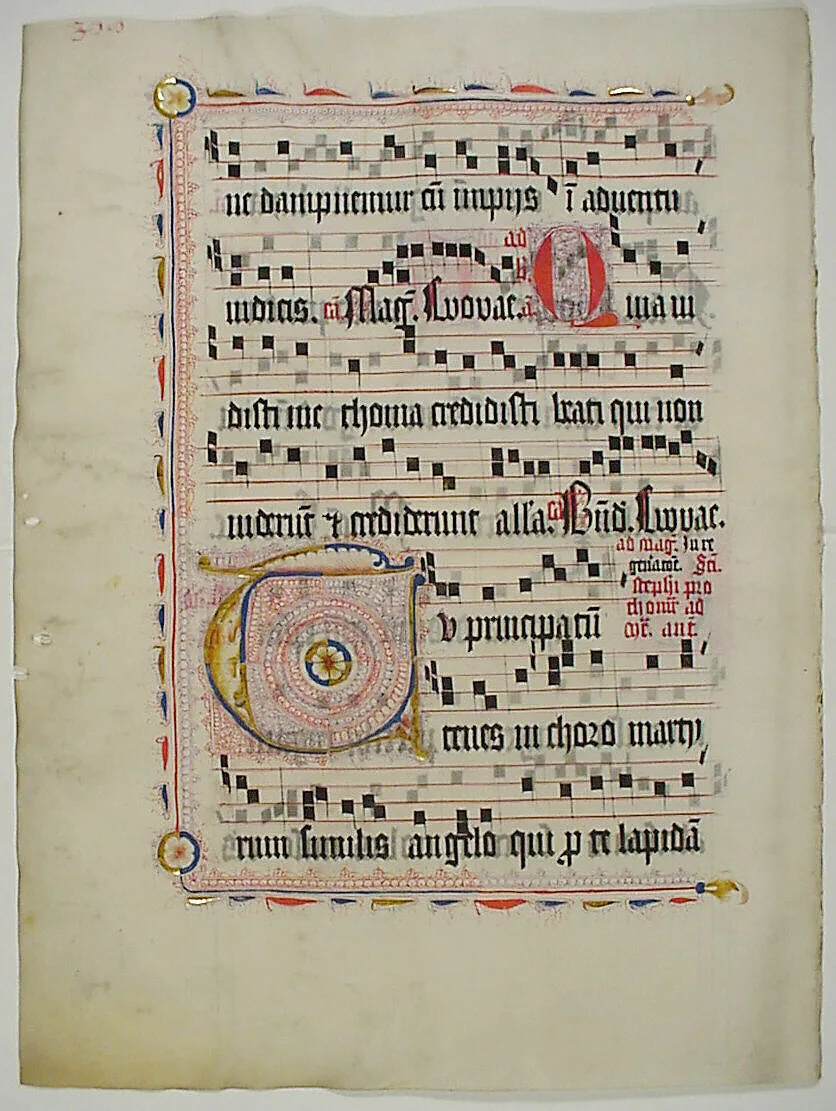 ne dampnemur cū īmpijs ī aduentu
iudicis. Mag̃. Evovae. ad Quia ui
disti me thoma credidisti beati qui non
uiderūt ⁊ crediderunt alľa. Bñd. Evovae.
ad mag̃. In re
Sc̄i.
stephi pro
thom̄r ad
Tu principatū
tenes in choro marty
rum similis angelo qui ꝑ te lapidā